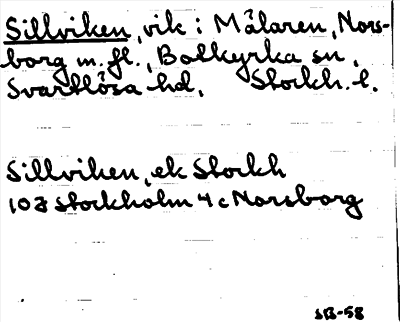 Sillviken, vik i Mälaren, Nors-
borg m. fl., Botkyrka sn,
Svartlösa hd. Stockh. l.
Sillviken, ek Stockh
10J Stockholm 4c Norsborg
SB-58